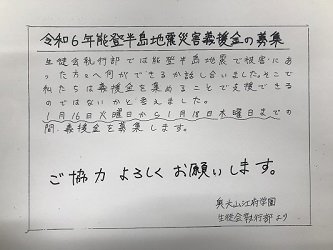 令和6年能登半島地震災害義援金の募集
生徒会執行部では能登半島地震で被害にあ
った方々へ何ができるか話し合いました。そこで
私たちは義援金を集めることで支援できる
のではないかと考えました。
1月16日火曜日から1月18日木曜日までの
間、義援金を募集します。
ご協力 よろしく お願いします。
奥大山江府学園
生徒会執行部より